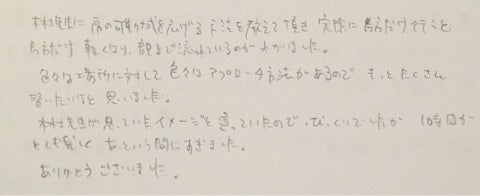 木村先生に肩の可動域を広げる方法を教えて頂き、実際に片方だけ行うと
片方だけ軽くなり、腕まで流れているのがわかりました。
色々な場所に対して色々なアプローチ方法があるので、もっとたくさん
習いたいなと思いました。
木村先生が思っていたイメージと違っていたので、びっくりでしたが、1時間が
とても楽しく あっという間にすぎました。
ありがとうございました。